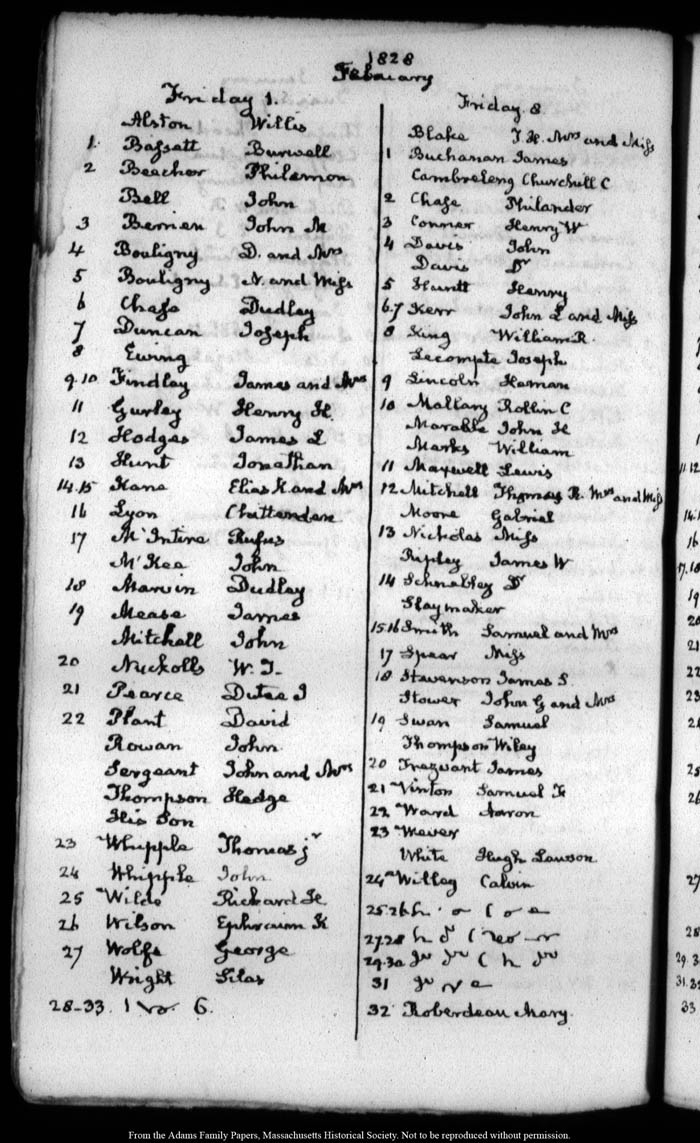 1828
February
Friday 1.
Alston Willis
1 Bassett Burwell
2 Beecher Philemon
Bell John
3 Berrien John M
4 Bouligny D. and Mrs
5 Bouligny N. and Miss
6 Chase Dudley
7 Duncan Joseph
8 Ewing
9.10 Findlay James and Mrs
11 Gurley Henry H.
12 Hodges James L
13 Hunt Jonathan
14.15 Kane Elias K and Mrs
16 Lyon Chittenden
17 McIntire Rufus
McKee John
18 Marvin Dudley
19 Mease James
Mitchell John
20 Nuckolls W. T.
21 Pearce Dutee J
22 Plant David
Rowan John
Sergeant John and Mrs
Thompson Hedge
His Son
23 Whipple Thomas jr
24 Whipple John
25 Wilde Richard H
26 Wilson Ephraim K
27 Wolfe George
Wright Silas
28-33. 6.
Friday. 8
Blake J. H. Mrs and Miss
1 Buchanan James
Cambreleng Churchill C
2 Chase Philander
3 Conner Henry W
4 Davis John
Davis Dr
5 Huntt Henry
6.7 Kerr John L and Miss
8 King William R.
Lecompte Joseph
9 Lincoln Heman
10 Mallary Rollin C
Marable John H
Marks William
11 Maxwell Lewis
12 Mitchell Thomas R. Mrs and Miss
Moore Gabriel
13 Nicholas Miss
Ripley James W
14 Schnabley Dr
Slaymaker
15.16 Smith Samuel and Mrs
17 Spear Miss
18 Stevenson James S.
Stower John G and Mrs
19 Swan Samuel
Thompson Wiley
20 Trezvant James
21 Vinton Samuel F
22 Ward Aaron
23 Wever
White Hugh Lawson
24 Willey Calvin
25.26
27.28
29.30
31
32 Roberdeau Mary.
11.12
16
17.18
19
20
21
22
23
24
25
26
27
28
29.3
31.3
33
From the Adams Family Papers, Massachusetts Historical Society. Not to be reproduced without permission.